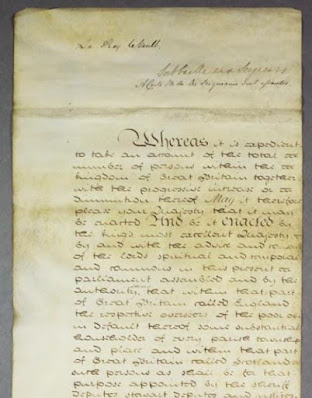 Le Roy le Veult
Soit baillé aux Seigneurs
A ceste Bille les Seigneurs sont assentus
Whereas it is expedient
to take an account of the total
number of persons within the
kingdom of Great Britain together
with the progressive increase or
diminution thereof May it therefore
please your Majesty that it may
be enacted And be it enacted by
the Kings most excellent Majesty
by and with the advice and consent
of the lords spiritual and temporal
and commons in this present
parliament assembled and by the
authority that within that part
of Great Britain called England
the respective overseers of the poor or
in default thereof some substantial
householder of every parish township
and place and within that part
of Great Britain called Scotland
such persons as shall be for that
purpose appointed by the sheriff
deputes stewart deputes and